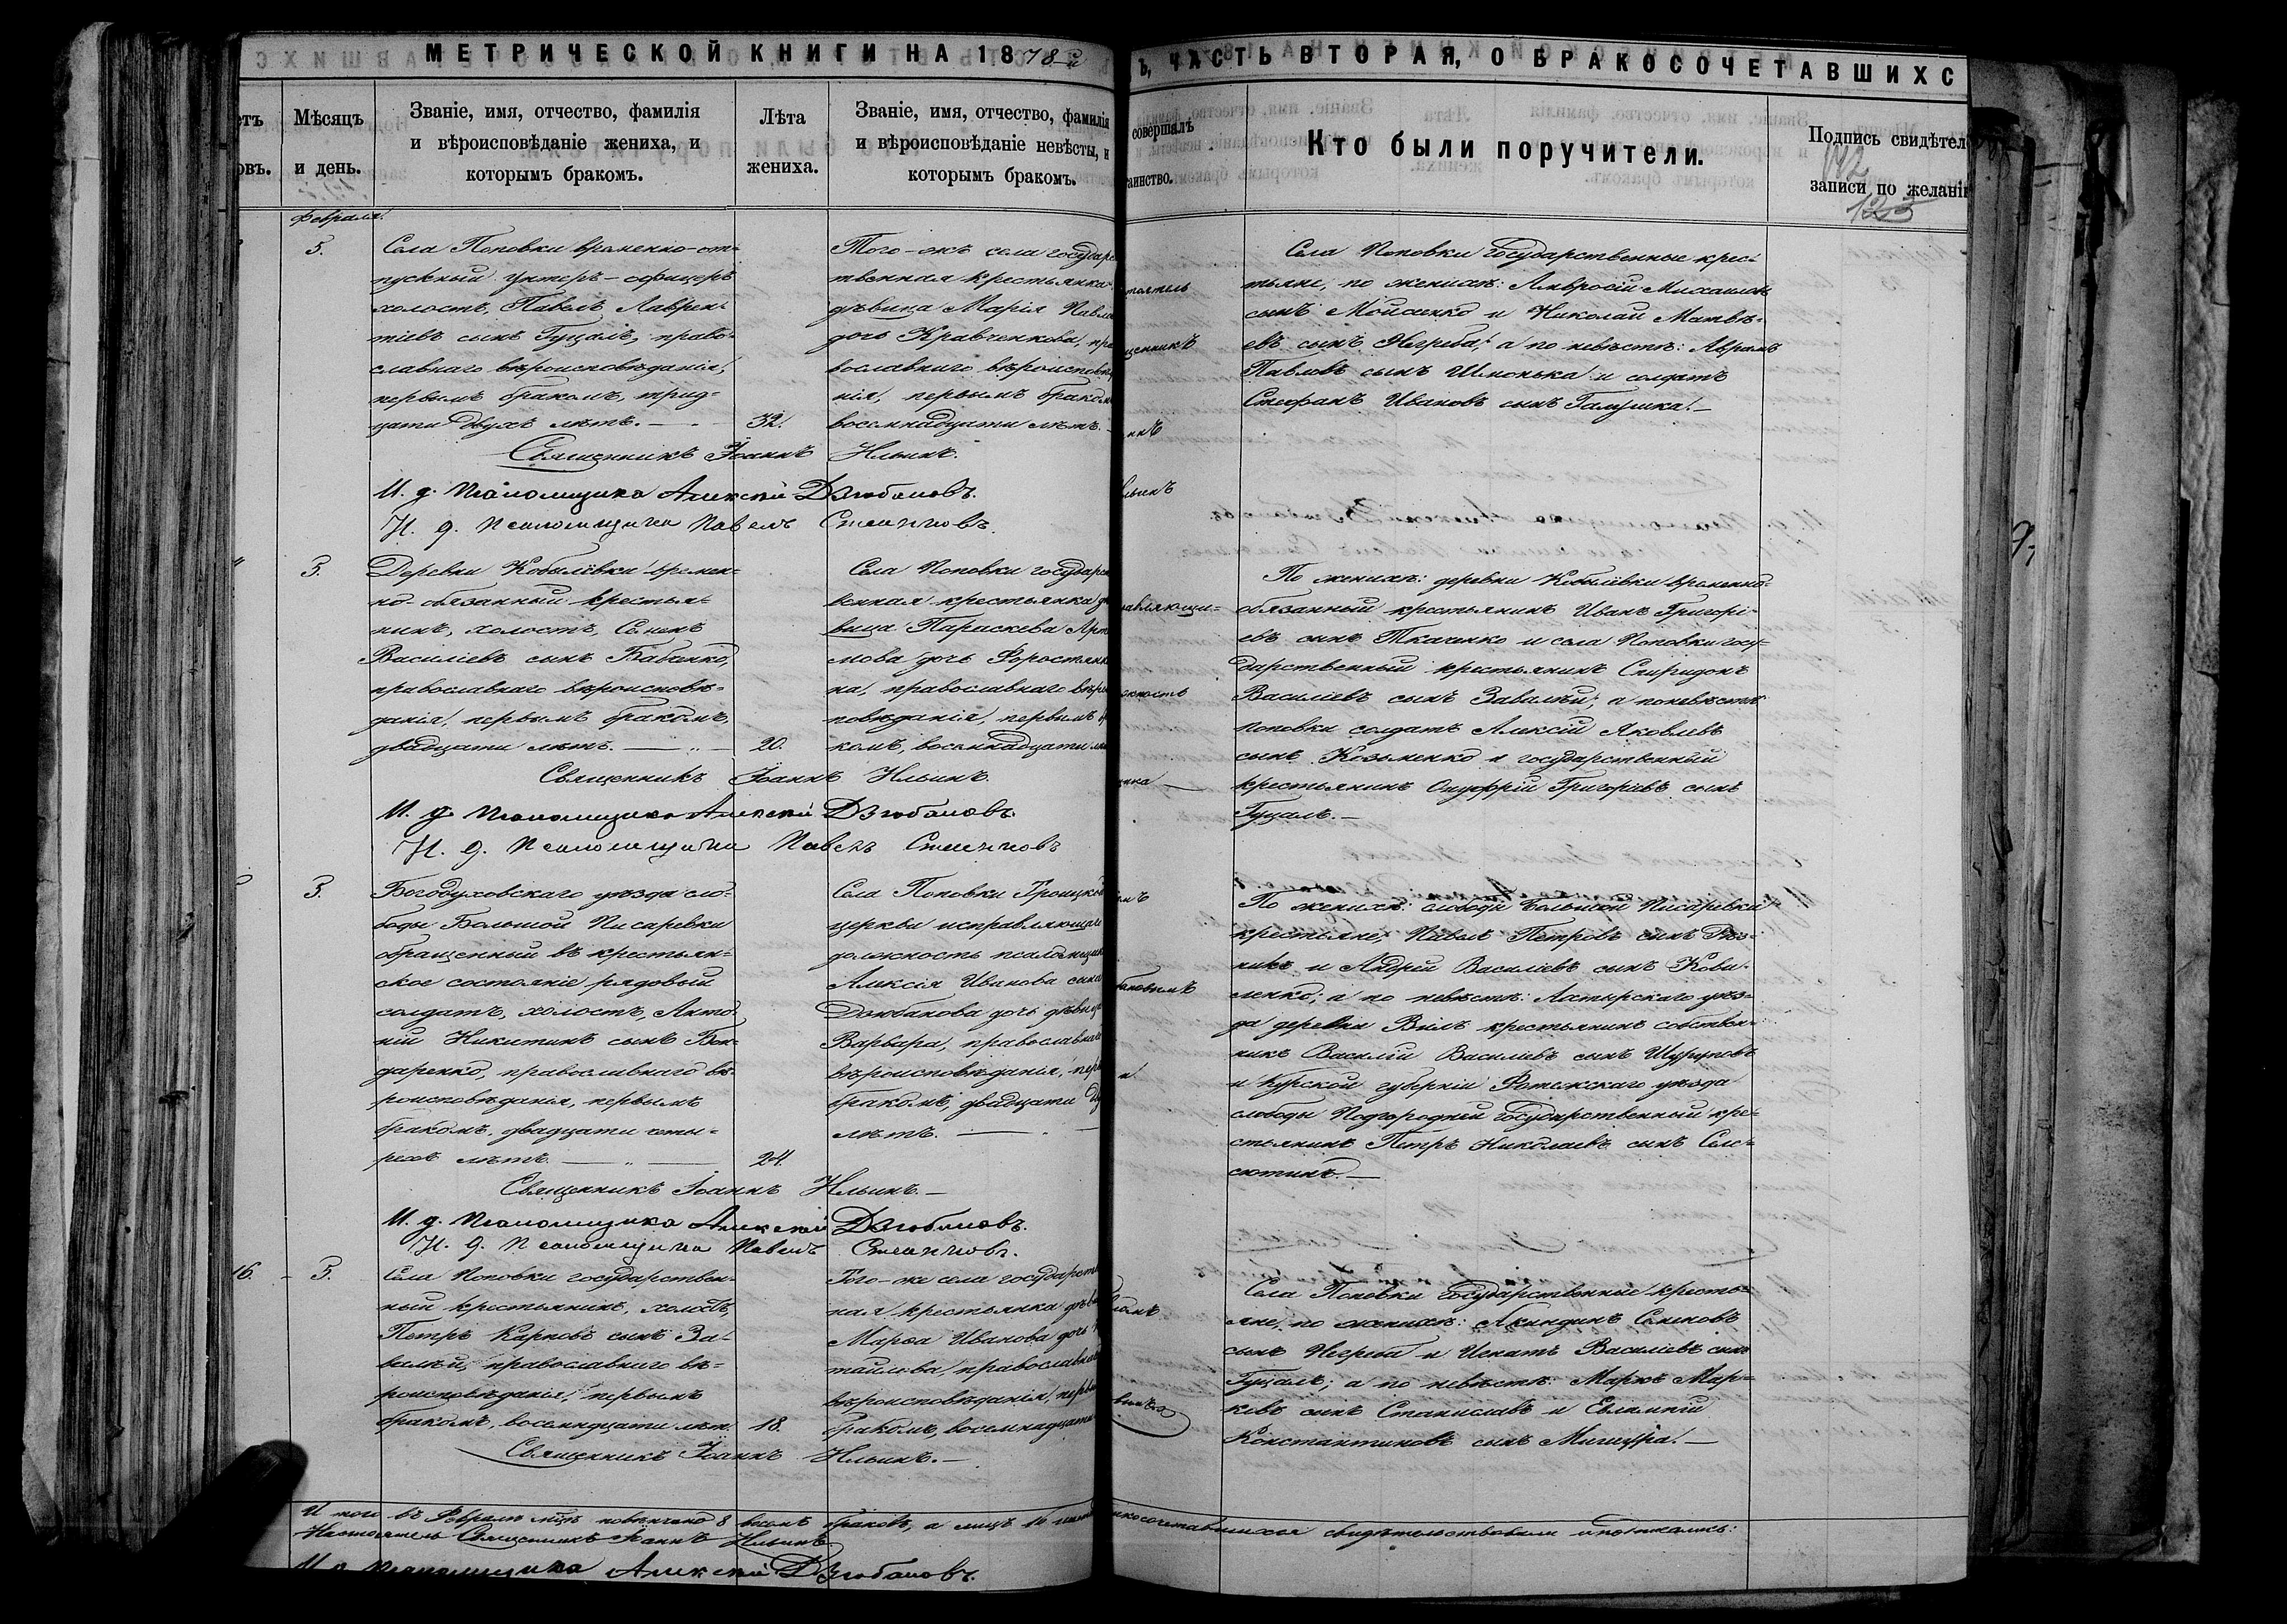 МЕТРИЧЕСКОЙ КНИГИ НА 1878
Ъ, ЧАСТЬ ВТОРАЯ, О БРАКОСОЧЕТАВШИХС
етъ
овъ.
Мѣсяцъ
и день.
Званіе, имя, отчество, фамилія
и вѣроисповѣданіе жениха, и
которымъ бракомъ.
Лѣта
жениха.
Званіе, имя, отчество, фамилія
и вѣроисповѣданіе невѣсты, и
которымъ бракомъ.
совершалъ
таинство.
Кто были поручители.
Подпись свидѣтел
записи по желані
142
123
Февраля
5.
Села Поповки временно-от-
пускный унтеръ-офицеръ
холостъ, Павелъ Лаврен-
тіевъ сынъ Гуцалъ, право-
славнаго вѣроисповѣданія,
первымъ бракомъ, трид-
цати двухъ лѣтъ.
32.
Того-жъ села государс
твенная крестьянка
дѣвица Марія Павло
дочь Кравченкова, пра
вославнаго вѣроисповѣ
нія, первымъ браком
восемнадцати лѣтъ.
Села Поповки государственные крес-
тьяне, по женихѣ: Амвросій Михаиловъ
сынъ Мойсенко и Николай Матвѣ-
евъ сынъ Негреба; а по невѣстѣ: Аврамъ
Павловъ сынъ Шмонька и солдатъ
Стефанъ Ивановъ сынъ Галушка.
Священникъ Іоаннъ Ильинъ.
И. д. Псаломщика Алексій Дзюбановъ.
И. д. Псаломщика Павелъ
5.
Деревни Кобылевки времен-
но-обязанный крестья-
нинъ, холостъ, Семенъ
Василіевъ сынъ Бабенко,
православнаго вѣроисповѣ-
данія, первымъ бракомъ,
двадцати лѣтъ.
20.
Села Поповки государс
венная крестьянка дѣ
вица Параскева Арт
мова дочь Форостянк
на, православнаго вѣро
повѣданія, первымъ бр
комъ, восемнадцати лѣ
авляющи-
По женихѣ: деревни Кобылевки временно-
обязанный крестьянинъ Иванъ Григорі-
евъ сынъ Ткаченко и села Поповки госу-
дарственный крестьянинъ Спиридонъ
Василіевъ сынъ Завалѣй; а по невѣстѣ
Поповки солдатъ Алексій Яковлевъ
сынъ Козьменко и государственный
крестьянинъ Онуфрій Григорьевъ сынъ
Гуцалъ.
Священникъ Іоаннъ Ильинъ.
И. д. Псаломщика Алексій Дзюбановъ.
И. д. Псаломщика Павелъ
5.
Богодуховскаго уѣзда сло-
боды Большой Писаревки
обращенный въ крестьян-
ское состояніе рядовый
солдатъ, холостъ, Анто-
ній Никитинъ сынъ Бон-
даренко, православнаго вѣ-
роисповѣданія, первымъ
бракомъ, двадцати четы-
рехъ лѣтъ.
24.
Села Поповки Троицкой
церкви исправляющаго
должность псаломщик
Алексія Иванова сына
Дзюбанова дочь дѣвица
Варвара, православнаго
вѣроисповѣданія, перв
бракомъ, двадцати
лѣтъ.
По женихѣ: слободы Большой Писаревки
крестьяне, Павелъ Петровъ сынъ Рѣз-
никъ и Андрей Василіевъ сынъ Кова-
ленко; а по невѣстѣ: Ахтырскаго уѣз-
да деревни Вилъ крестьянинъ собствен-
никъ Василій Василіевъ сынъ Шуруповъ
и Курской губерніи Фатежскаго уѣзда
слободы Подгородней государственный кре-
стьянинъ Петръ Николаевъ сынъ
Священникъ Іоаннъ Ильинъ.
И. д. Псаломщика Алексій Дзюбановъ.
И. д. Псаломщика Павелъ
16.
5.
Села Поповки государствен-
ный крестьянинъ, холостъ,
Петръ Карповъ сынъ За-
валѣй, православнаго вѣ-
роисповѣданія, первымъ
бракомъ, восемнадцати лѣт.
18.
Того-же села государств
ная крестьянка дѣви
Марѳа Иванова дочь
тайлова, православнаго
вѣроисповѣданія, первы
бракомъ, восемнадцати
Села Поповки государственные кресть-
яне, по женихѣ: Акиндинъ Семеновъ
сынъ Негреба и Игнатъ Василіевъ сынъ
Гуцалъ; а по невѣстѣ: Маркъ Мар-
ковъ сынъ Станиславъ и Евлампій
Константиновъ сынъ Мишура.
Священникъ Іоаннъ Ильинъ.
Итого въ Февралѣ мѣсяцѣ повѣнчано 8 восемь браковъ, а лицъ 16
свидѣтельствовали и подписались:
Настоятель Священникъ Іоаннъ Ильинъ
И. д. Псаломщика Алексій Дзюбановъ.